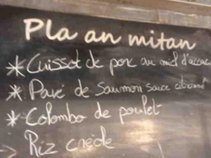 Pla an mitan
* Cuissot de porc au miel d'acacia
* Pavé de saumon sauce
* Colombo de poulet
→ Riz créole